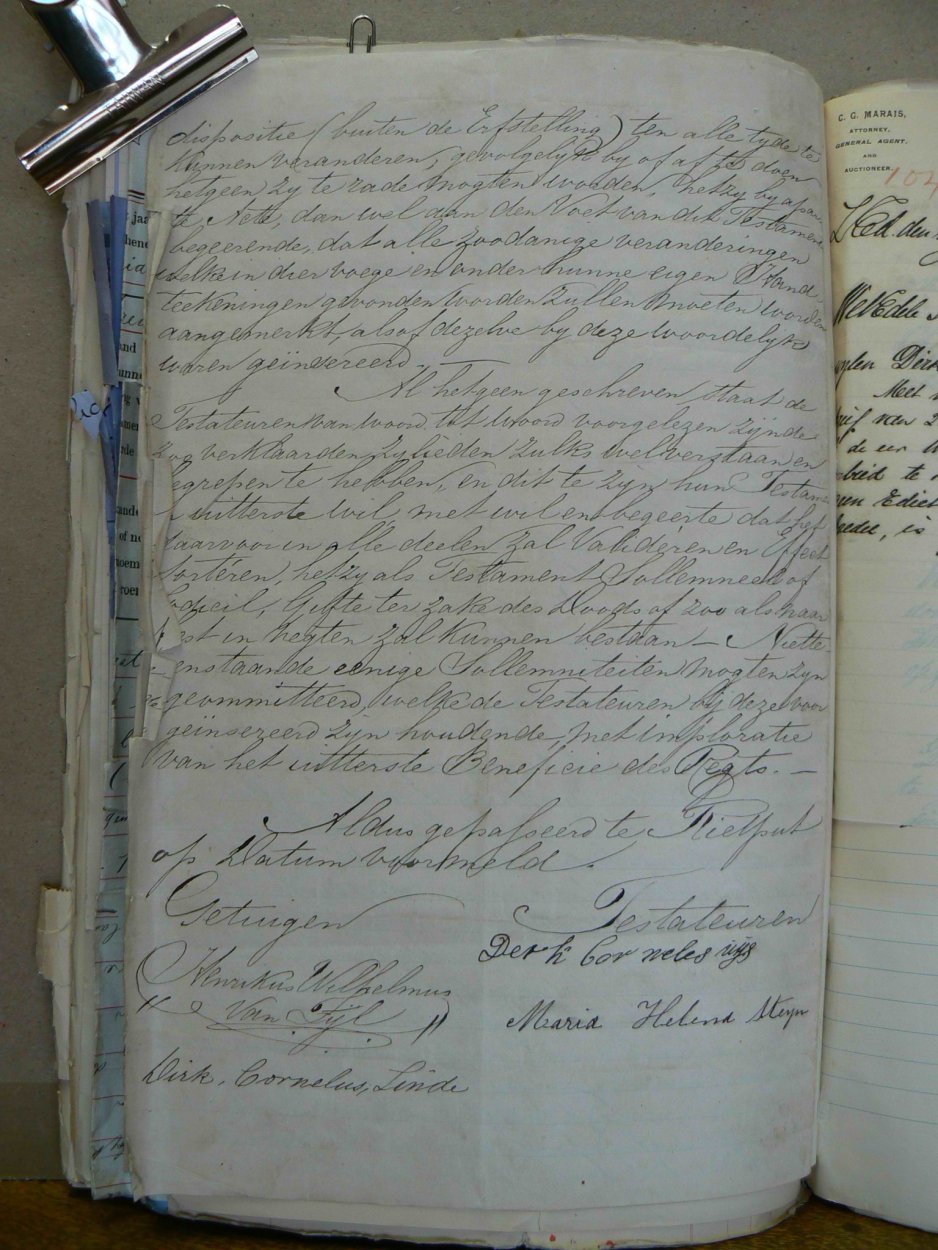 dispositie (buiten de Erfstelling) ten alle tyde te
kunnen veranderen, gevolgelyk by of af te doen
hetgeen zy te rade mogten worden, hetzy by apar
te Acte, dan wel aan den Voet van dit Testament
begeerende, dat alle zoodanige veranderingen
welke in dier voege en onder hunne eigen Hand
teekeningen gevonden worden zullen moeten worden
aangemerkt, alsof dezelve by deze woordelyk
waren geïnsereerd.
Al hetgeen geschreven staat de
Testateuren van woord tot woord voorgelezen zijnde
zoo verklaarden zylieden zulks wel verstaan en
begrepen te hebben, en dit te zijn hun Testam
uitterste wil, met wil en begeerte dat het
daarvoor in alle deelen zal Valideren en Effect
sorteren, hetzy als Testament Sollemneel of
odicil, Gifte ter zake des Doods of zoo als naar
est in regten zal kunnen bestaan — Niette
enstaande eenige Sollemniteiten mogten zyn
geommitteerd, welke de Testateuren bij deze voor
geïnsereerd zijn houdende, met imploratie
van het uitterste Beneficie des Regts. —
Aldus gepasseerd te Rietput
op Datum voormeld.
Getuigen
Testateuren
Derk Cor neles
Henrikus Wilhelmus
Van Zijl
Maria Helena Steyn
Dirk, Cornelus, Linde
C. G. MARAIS,
ATTORNEY,
GENERAL AGENT,
AND
AUCTIONEER.
104
WelEdele
Dirk
Met
van
de een
te
Edict
is